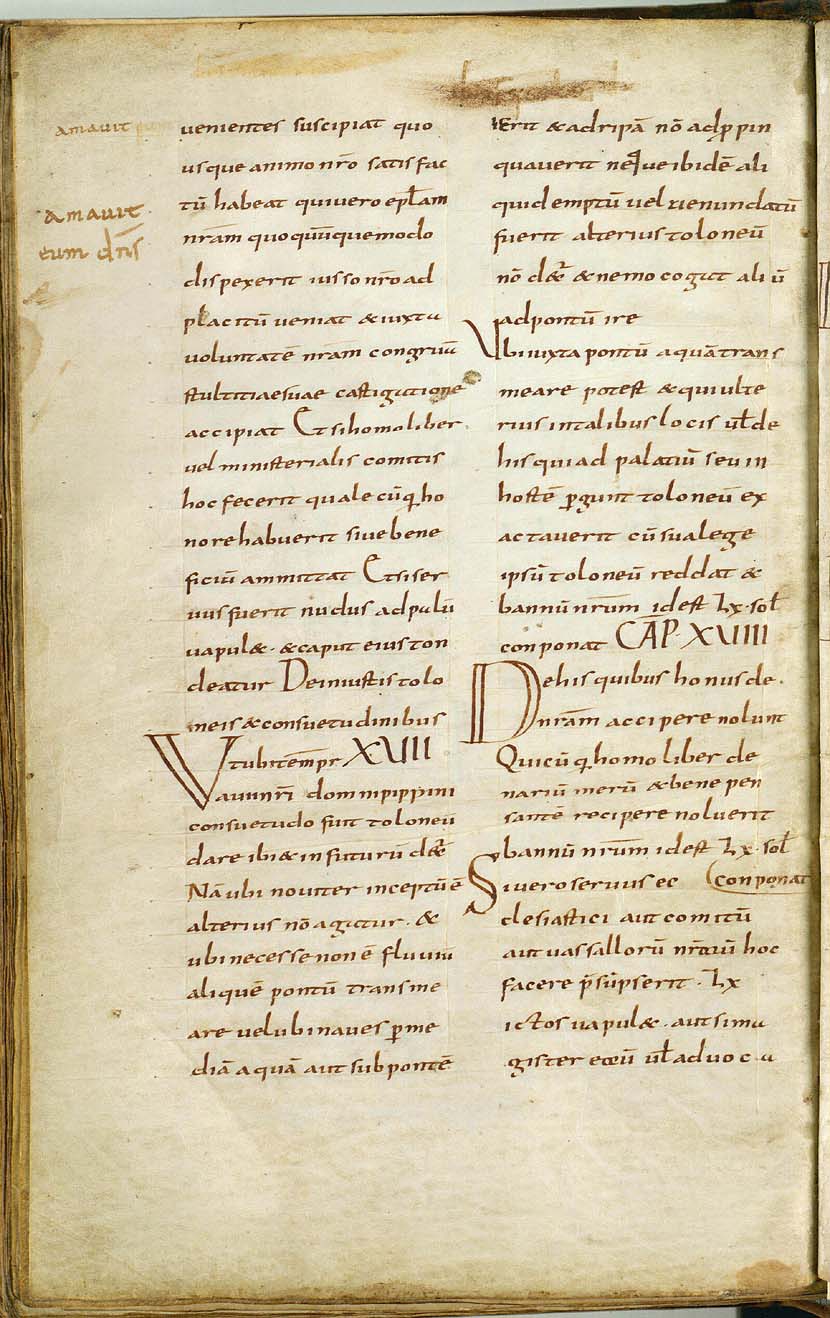 amauit
amauit
eum dñs
uenientes suscipiat quo
usque animo nr̄o satis fac
tū habeat qui uero epl̄am
nr̄am quo quūque modo
dispexerit iusso nr̄o ad
placitū ueniat & iuxta
uoluntatē nr̄am congruā
stultitiae suae castigatione
accipiat Et si homo liber
uel ministerialis comitis
hoc fecerit quale cūq; ho
nore habuerit siue bene
ficiū ammittat Et si ser
uus fuerit nudus ad palū
uapul& · & caput eius ton
deatur De iniustis tolo
neis & consuetudinibus
Vt ubi tēmpr XVIII
aui nr̄i domni pippini
consuetudo fuit toloneū
dare ibi & in futurū d&
Nā ubi nouiter inceptū ē
alterius nō agatur · &
ubi necesse non ē fluuiū
aliquē pontū transme
are uel ubi naues p̄ me
diā aquā aut sub pontē
ierit & ad ripā nō adp̄pin
quauerit neque ibidē ali
quid emptū uel uenundatū
fuerit alterius toloneū
nō d& & nemo cogat aliū
ad pontū ire
Vbi iuxta pontū aquā trans
meare potest & qui ulte
rius in talibus locis ul̄ de
his qui ad palatiū seu in
hostē p̄gunt toloneū ex
actauerit cū sua lege
ipsū toloneū reddat &
bannū nr̄um id est Lx · sol̄
conponat CAP · XVIIII
De his qui bus honus de ·
nr̄am accipere nolunt
Quicūq; homo liber de
nariū merū & bene pen
santē recipere noluerit
bannū nr̄um id est Lx · sol̄
Si uero seruus ec conponat
clesiastici aut comitū
aut uassallorū nr̄oru hoc
facere p̄sūpserit · Lx
ictos uapul& · aut si ma
gister eoru ul̄ aduoca